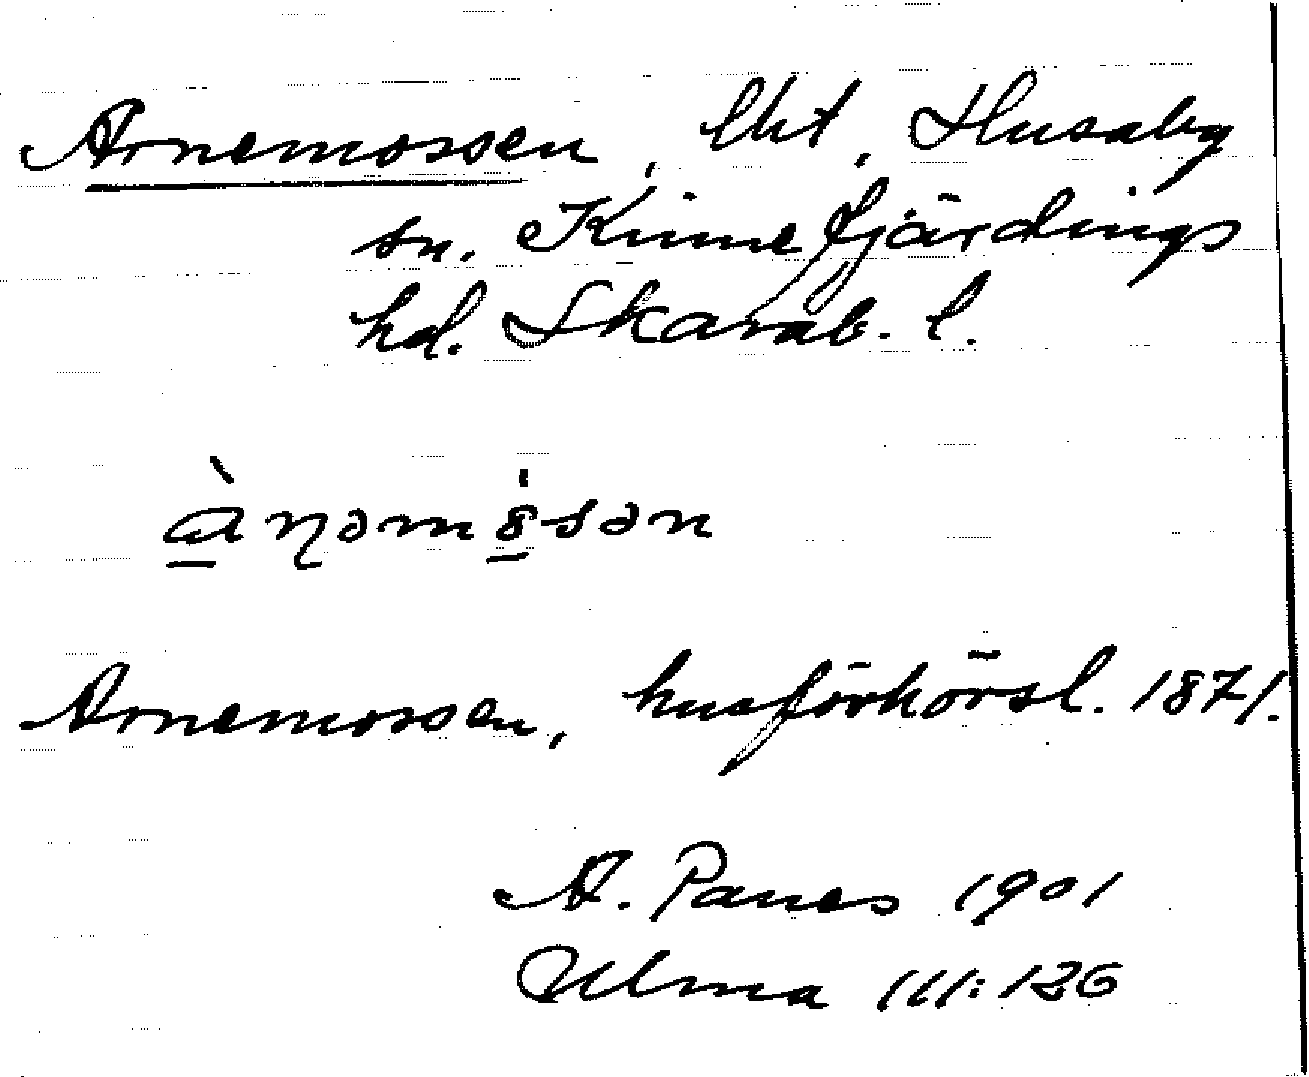 Arnemossen, lht, Husaby
sn. Kinnefjärdings
hd. Skarab. l.
ànəmȯsən
Arnemossen, husförhörsl. 1871.
A. Panes 1901
Ulma 111:126